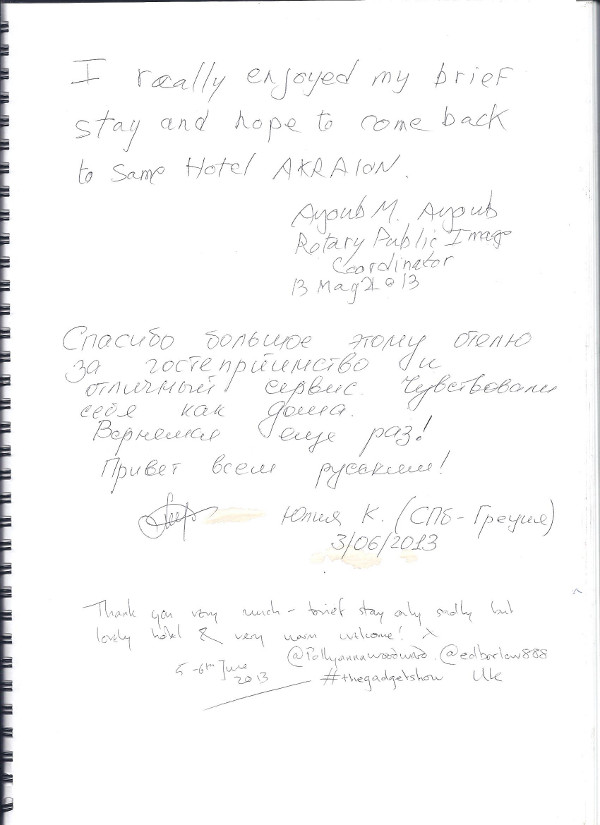 I really enjoyed my brief
stay and hope to come back
to same Hotel AKRAION.
Ayoub M. Ayoub
Rotary Public Image
Coordinator
13 May 2013
Спасибо большое этому отелю
за гостеприимство и
отличный сервис. Чувствовали
себя как дома.
Вернемся еще раз!
Привет всем русским!
Юлия К. (СПб-Греция)
3/06/2013
Thank you very much - brief stay only sadly but
lovely hotel & very warm welcome! x
@Pollyannawoodward. @edbarlow888
5-6th June
2013
#thegadgetshow UK